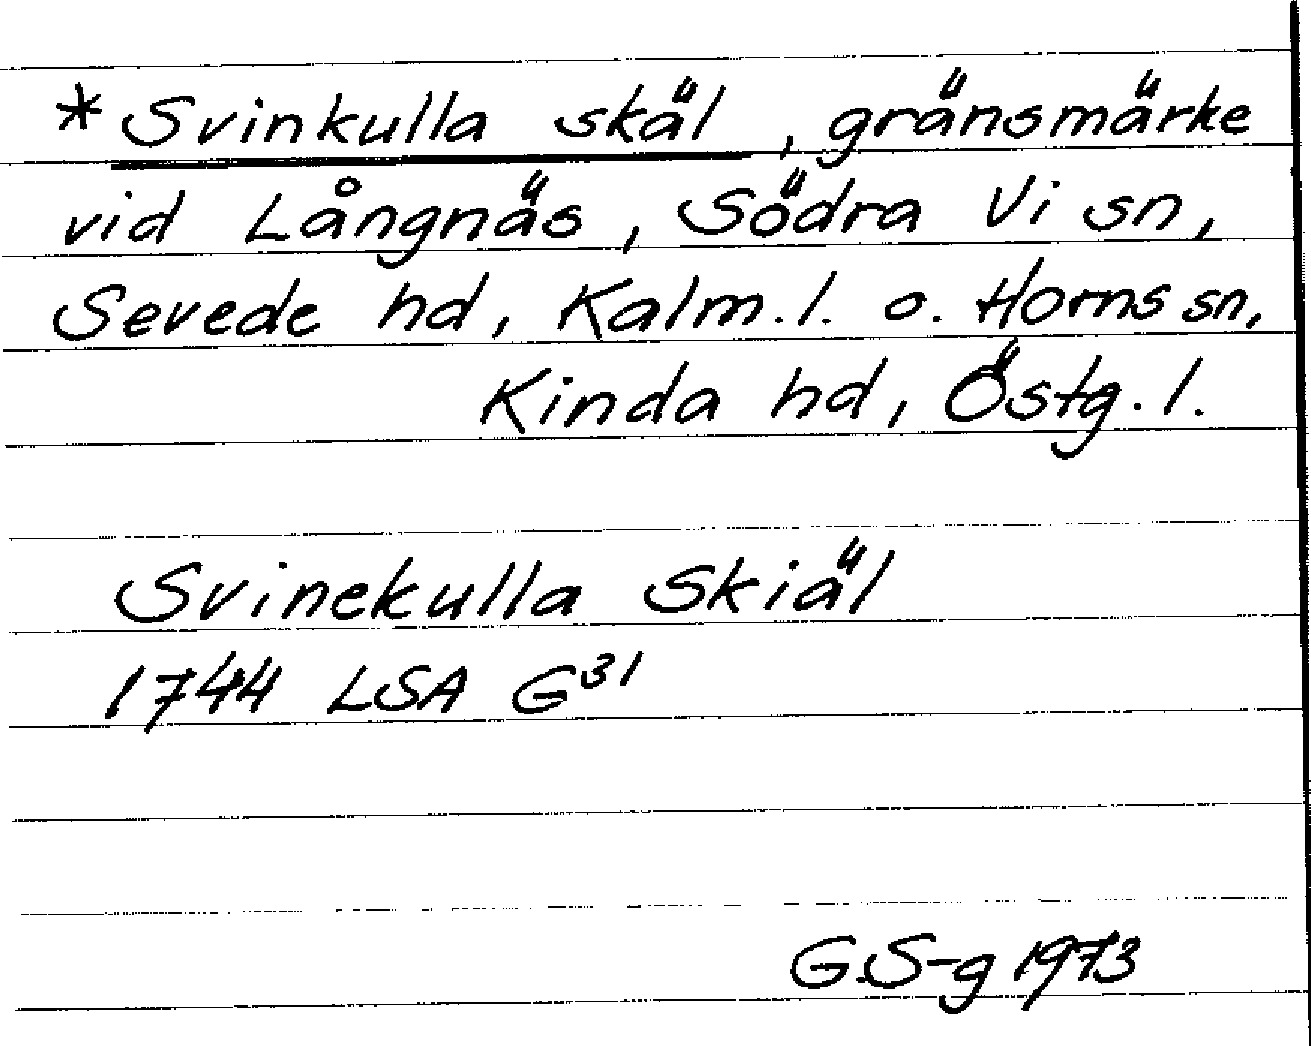 * Svinkulla skäl, gränsmärke
vid Långnäs, Södra Vi sn,
Sevede hd, Kalm.l. o. Horns sn,
Kinda hd, Östg.l.
Svinekulla Skiäl
1744 LSA G³¹
G.S-g 1973